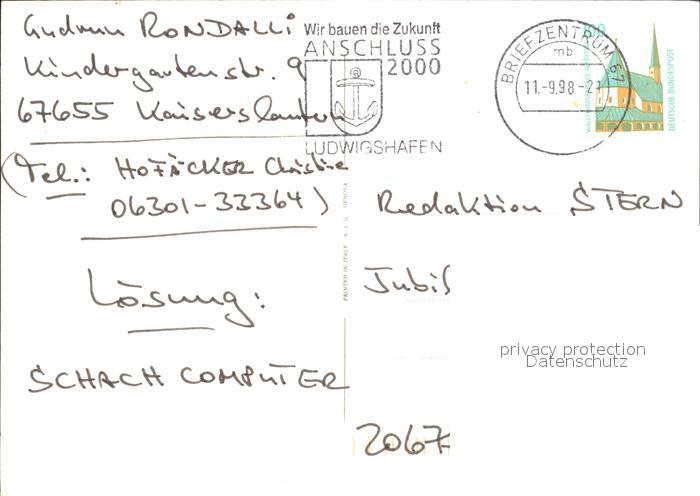 Gudrun RONDALLI
Kindergartenstr. 9
67655 Kaiserslautern
(Tel.: HOFÄCKER Christine
06301-33364)
Lösung:
SCHACH COMPUTER
Wir bauen die Zukunft
ANSCHLUSS
2000
LUDWIGSHAFEN
BRIEFZENTRUM 67
mb
11.-9.98-21
100
DEUTSCHE BUNDESPOST
PRINTED IN ITALY A. L. G. GENOVA
Redaktion STERN
Jubi
privacy protection
Datenschutz
2067